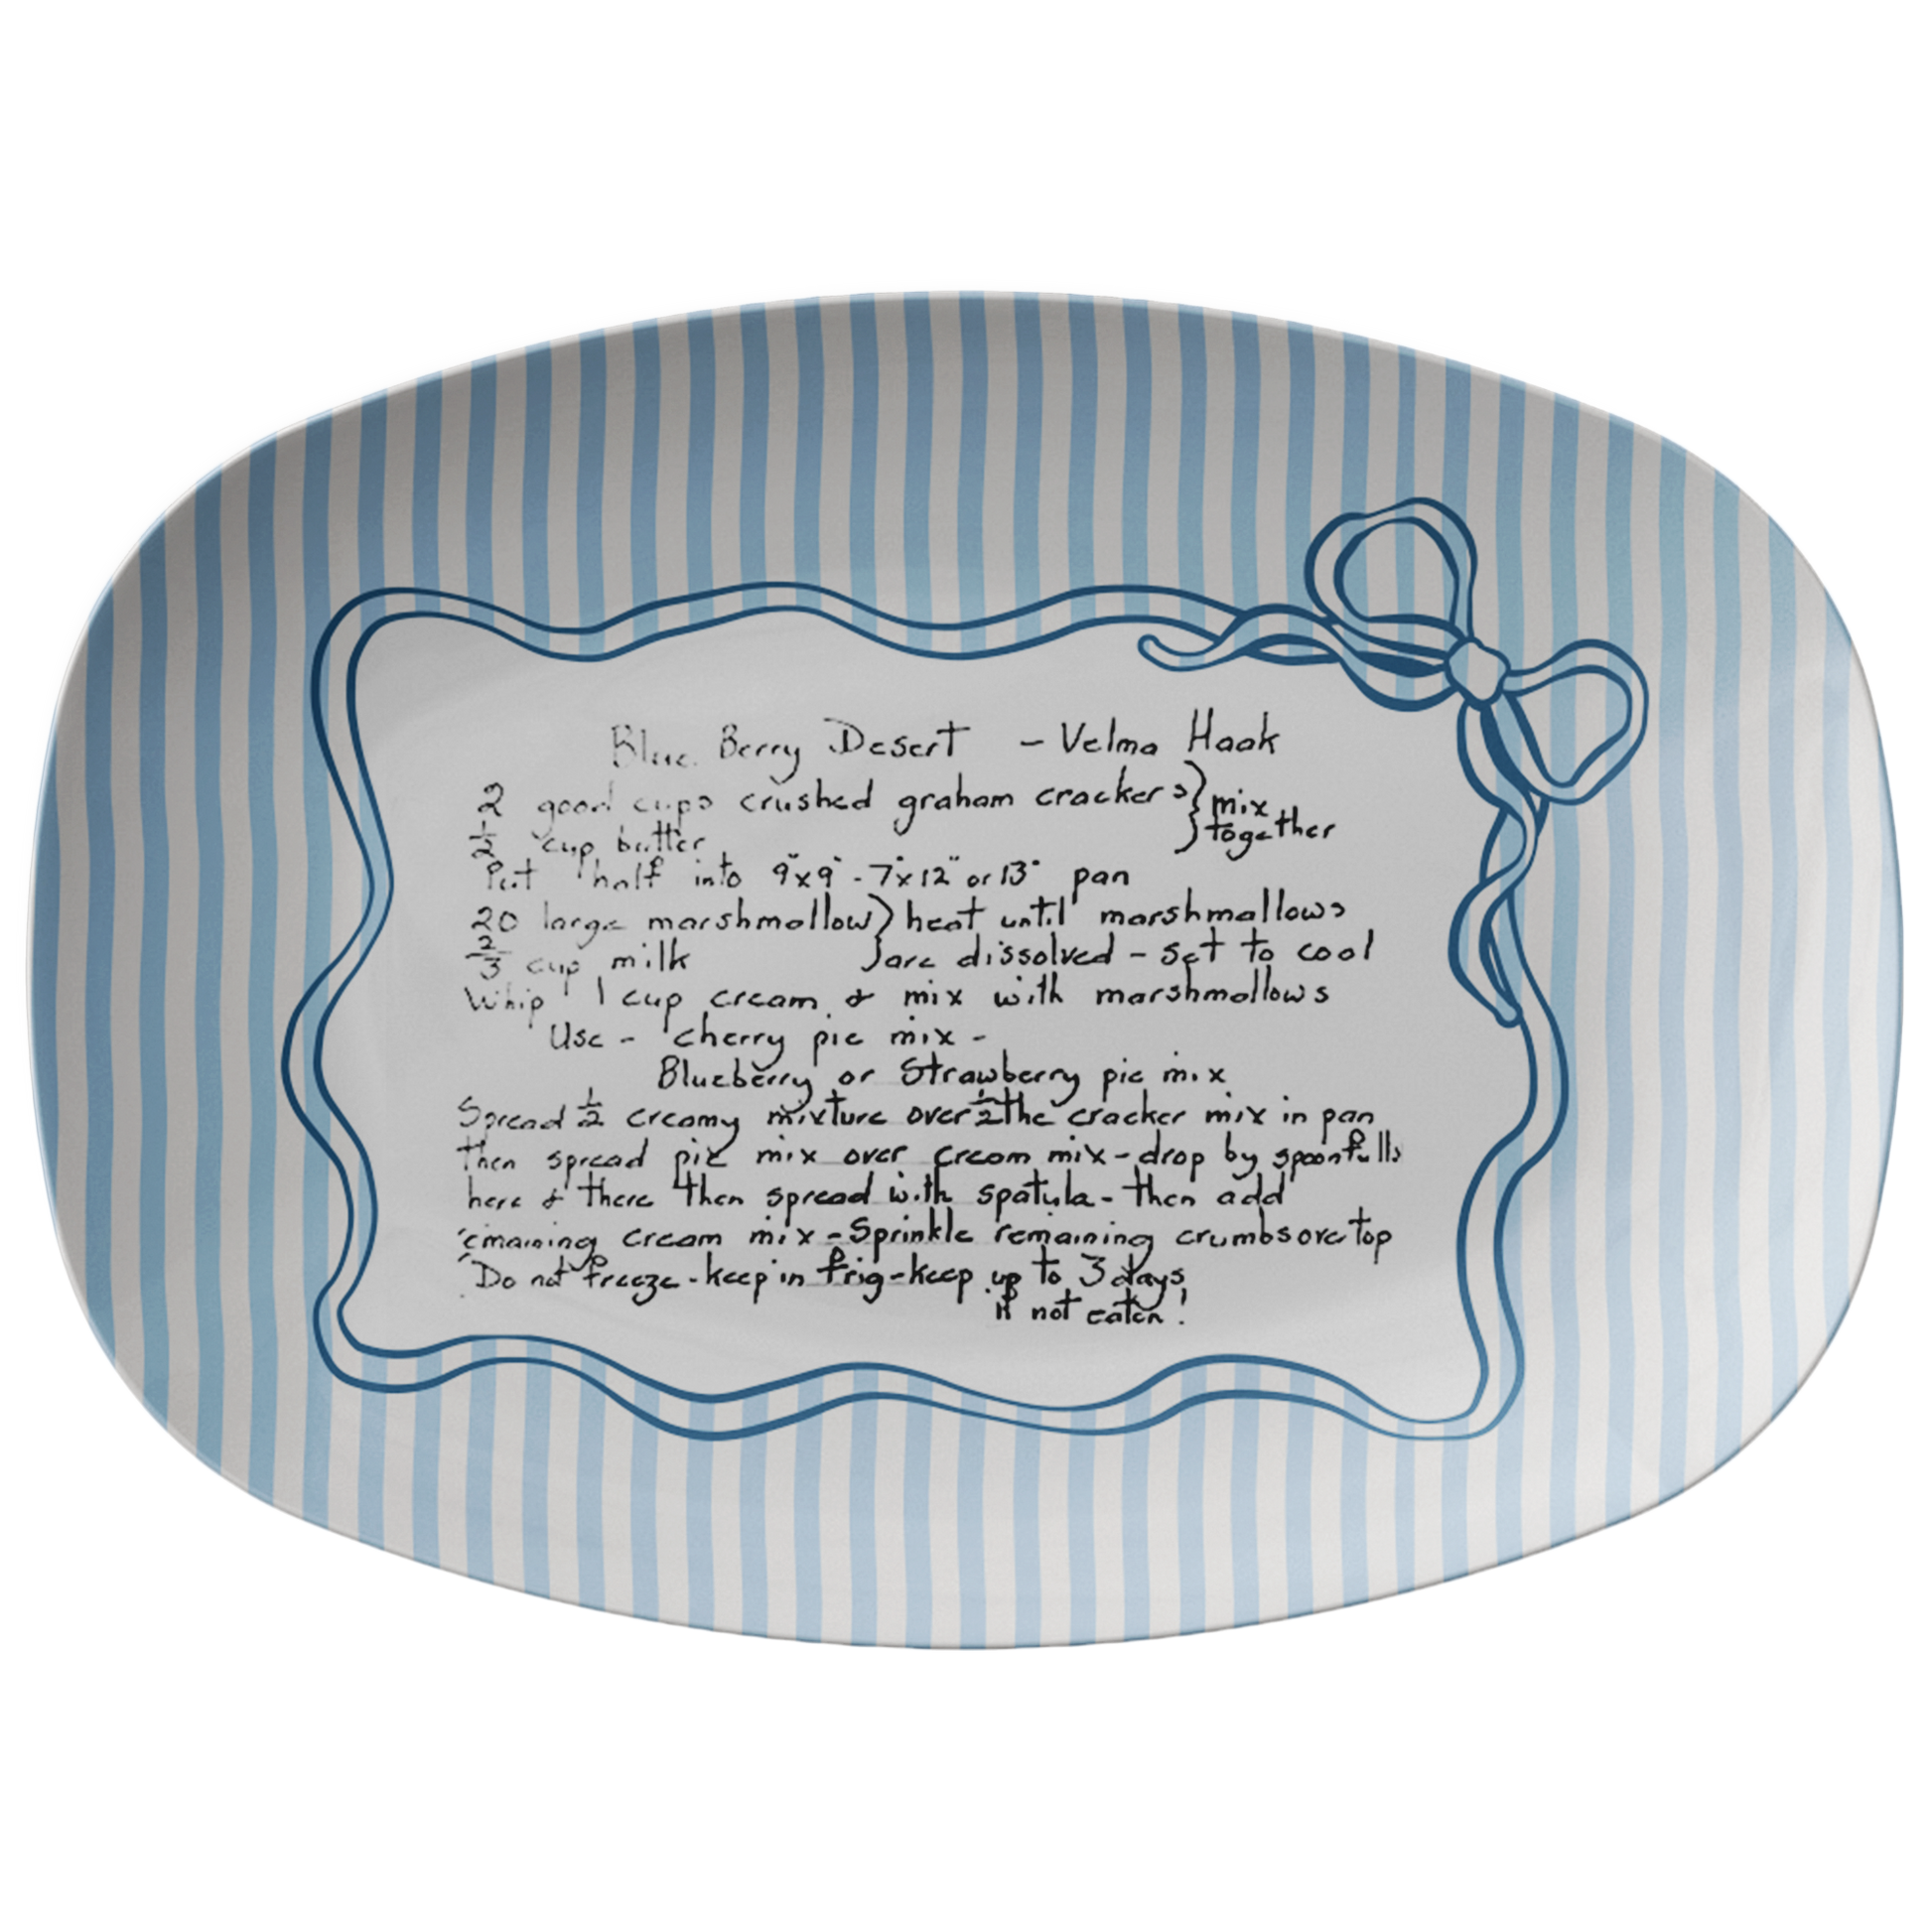 Blue Berry Desert - Velma Haak
2 good cups crushed graham crackers } mix
1/2 cup butter } together
Put half into 9"x9" - 7"x12" or 13" pan
20 large marshmallow } heat until marshmallows
2/3 cup milk } are dissolved - set to cool
Whip 1 cup cream & mix with marshmallows
Use - cherry pie mix -
Blueberry or Strawberry pie mix
Spread 1/2 creamy mixture over 1/2 the cracker mix in pan
then spread pie mix over cream mix - drop by spoonfulls
here & there then spread with spatula - then add
remaining cream mix - Sprinkle remaining crumbs over top
Do not freeze - keep in frig - keep up to 3 days
if not eaten!